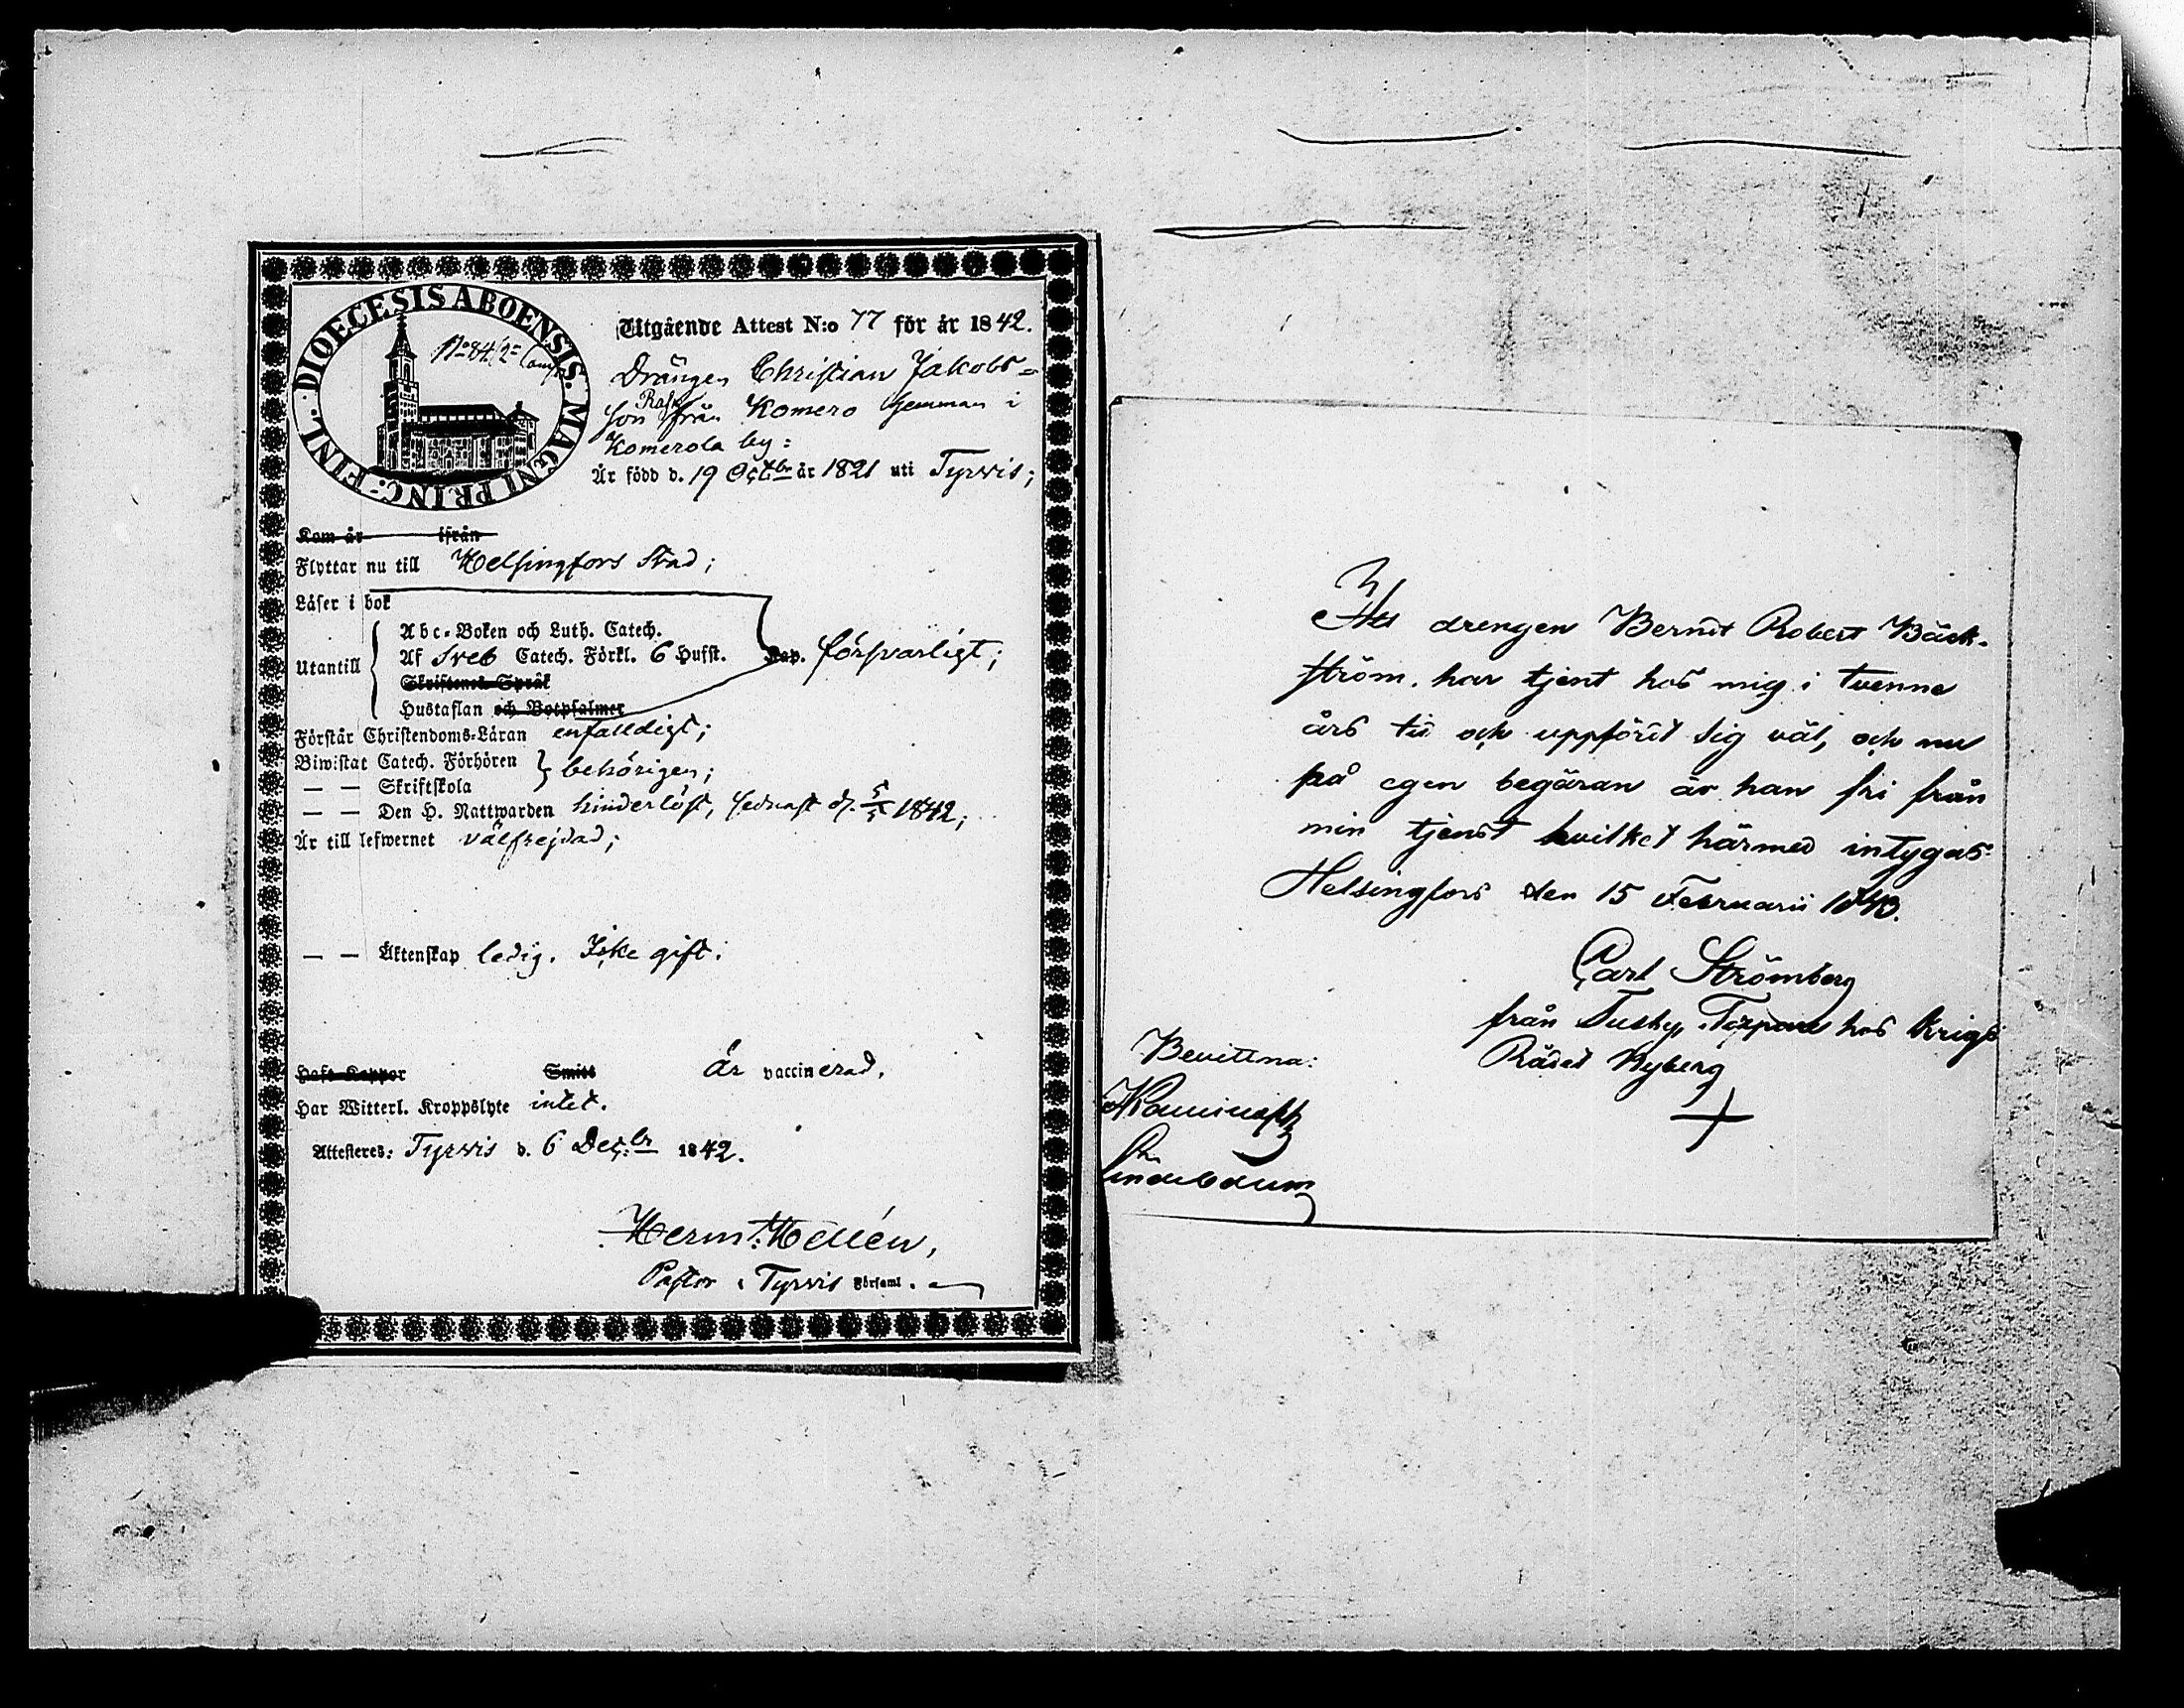 DIOECESIS ABOENSIS. MAGNI PRINC: FINL.
No 84/2
Utgående Attest N:o 77 för år 1842.
Drängen Christian Jakobs=
son Rask från Komero hemman i
Komerola by:
Är född d. 19 Octbr år 1821 uti Tyrvis;
Kom år ifrån
Flyttar nu till Helsingfors Stad;
Läser i bok
Utantill
Abc-Boken och Luth. Catech.
Af Sveb Catech. Förkl. 6 Hufst. Kap. försvarligt;
Skriftenes Språk
Hustaflan och Botpsalmer
Förstår Christendoms-Läran enfalldigt;
Biwistat Catech. Förhören } behörigen;
— — Skriftskola
— — Den H. Nattwarden hinderlöst, sednast d. 5/5 1842;
Är till lefwernet välfrejdad;
— — Äktenskap ledig. Icke gift.
Haft Koppor Smitt är vaccinerad.
Har Witterl. Kroppslyte intet.
Attesteres: Tyrvis d. 6 Dec:br 1842.
Herm: Hellén,
Pastor i Tyrvis Församl.
Att drengen Berndt Robert Bäck-
ström. har tjent hos mig i tvenne
års tid och uppfördt sig väl, och nu
på egen begäran är han fri från
min tjenst hvilket härmed intygas
Helsingfors den 15 Februarii 1843.
Carl Strömberg
från Tusby, Torpare hos Krigs
Rådet Ryberg
Bevittna:
Lindebaum